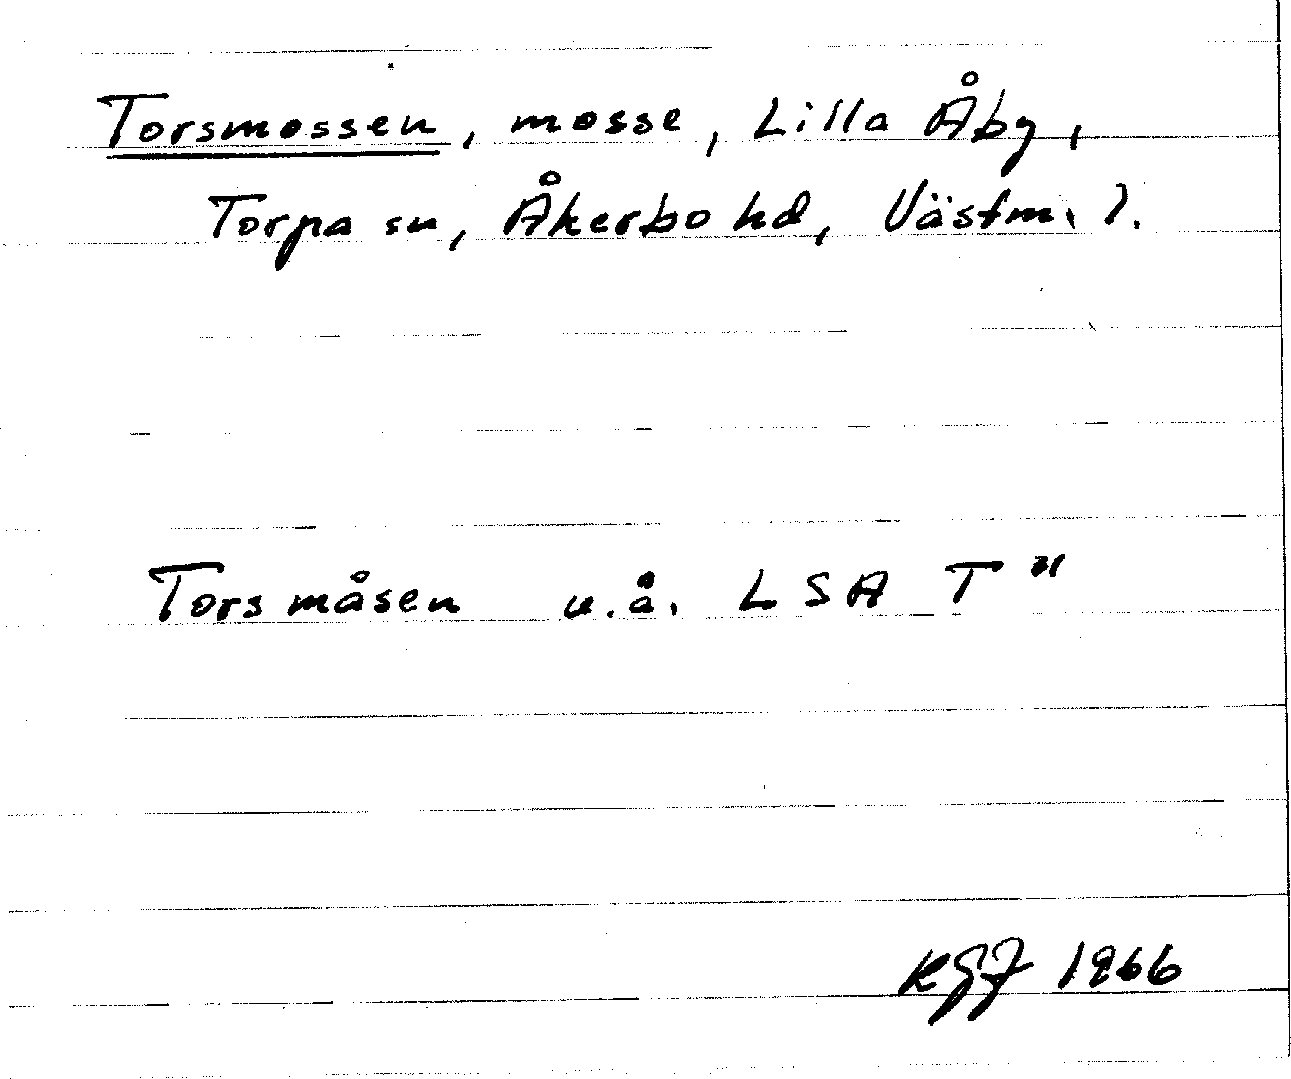 Torsmossen, mosse, Lilla Åby,
Torpa sn, Åkerbo hd, Västm. l.
Torsmåsen u.å. LSA T
1966